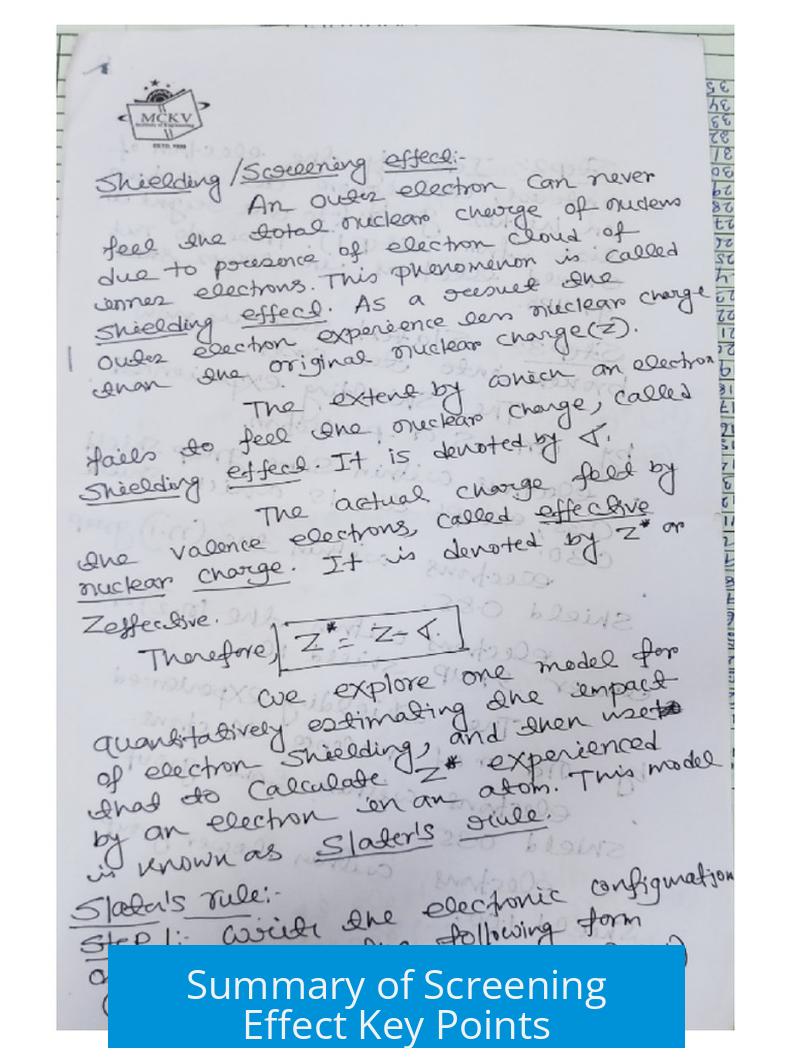 MCKV
Institute of Engineering
ESTD. 1999
Shielding / Screening effect:-
An outer electron can never
feel the total nuclear charge of nucleus
due to presence of electron cloud of
inner electrons. This phenomenon is called
shielding effect. As a result the
outer electron experience less nuclear charge
than the original nuclear charge(z).
The extent by which an electron
fails to feel the nuclear charge, called
shielding effect. It is denoted by σ.
The actual charge feld by
the valence electrons, called effective
nuclear charge. It is denoted by Z* or
Zeffective.
Therefore, Z* = Z - σ.
We explore one model for
quantitatively estimating the impact
of electron shielding, and then use
that to calculate Z* experienced
by an electron in an atom. This model
is known as Slater's rule.
Slater's rule:-
Step 1:- Write the electronic configuration
following form
Summary of Screening
Effect Key Points